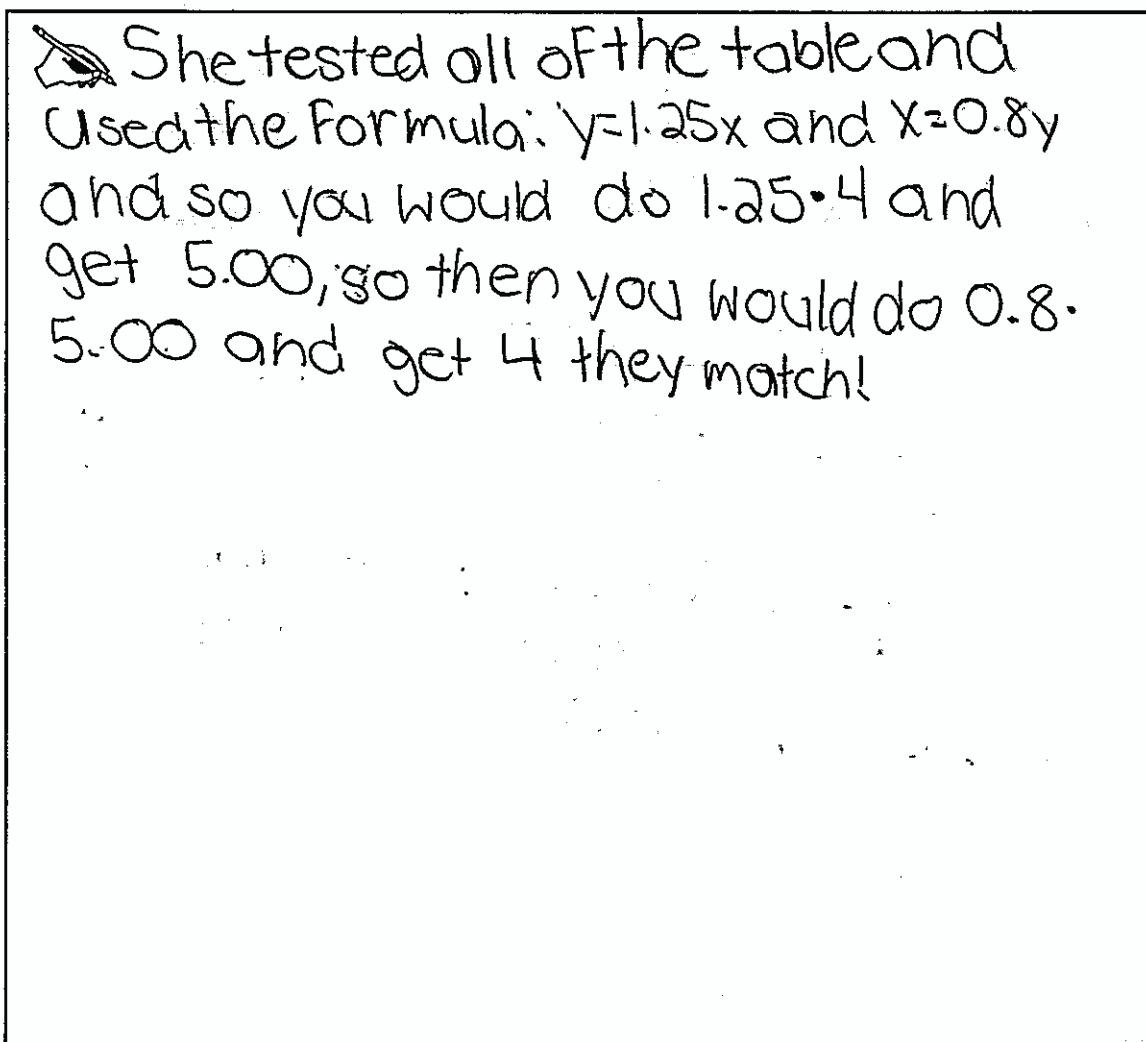 She tested all of the table and
used the formula: y=1.25x and x=0.8y
and so you would do 1.25•4 and
get 5.00, so then you would do 0.8•
5.00 and get 4 they match!